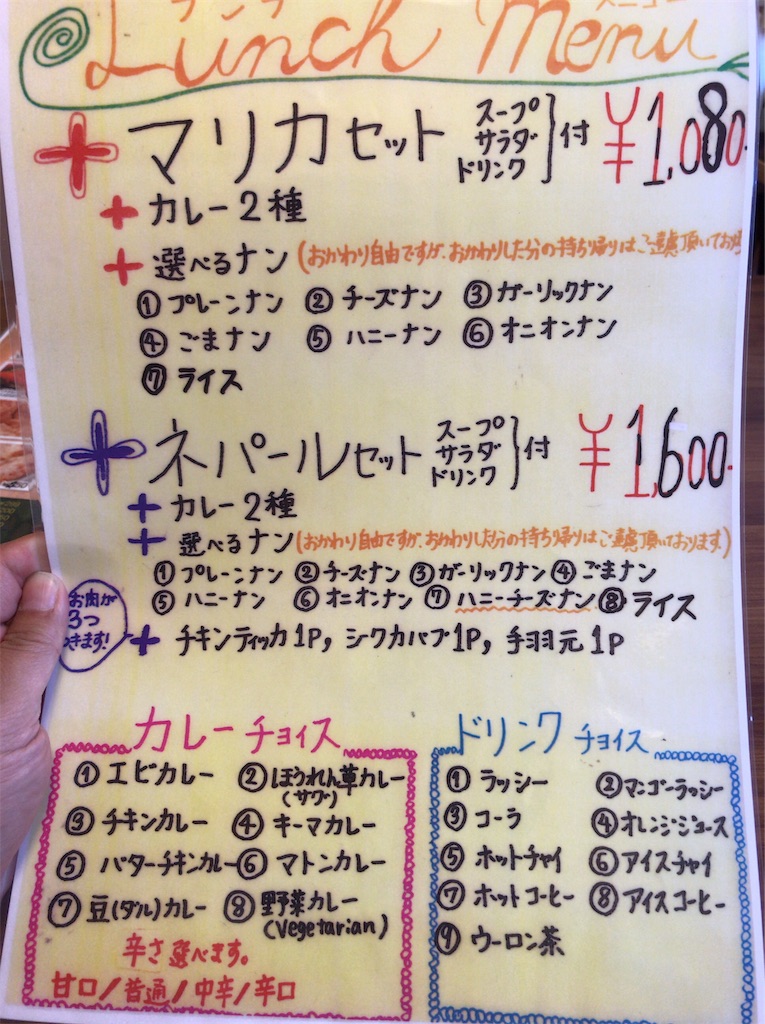 ランチ メニュー
Lunch Menu
マリカセット スープ サラダ ドリンク 付 ¥1,080
+ カレー2種
+ 選べるナン (おかわり自由ですが、おかわりした分の持ち帰りはご遠慮頂いてお
① プレーンナン ② チーズナン ③ ガーリックナン
④ ごまナン ⑤ ハニーナン ⑥ オニオンナン
⑦ ライス
ネパールセット スープ サラダ ドリンク 付 ¥1,600-
+ カレー2種
+ 選べるナン (おかわり自由ですが、おかわりした分の持ち帰りはご遠慮頂いております。)
① プレーンナン ② チーズナン ③ ガーリックナン ④ ごまナン
⑤ ハニーナン ⑥ オニオンナン ⑦ ハニーチーズナン ⑧ ライス
お肉が
3つ
つきます!
+ チキンティッカ1P, シクカバブ1P, 手羽元1P
カレーチョイス
① エビカレー ② ほうれん草カレー
(サグ)
③ チキンカレー ④ キーマカレー
⑤ バターチキンカレー ⑥ マトンカレー
⑦ 豆(ダル)カレー ⑧ 野菜カレー
(Vegetarian)
辛さ選べます。
甘口/普通/中辛/辛口
ドリンクチョイス
① ラッシー ② マンゴーラッシー
③ コーラ ④ オレンジジュース
⑤ ホットチャイ ⑥ アイスチャイ
⑦ ホットコーヒー ⑧ アイスコーヒー
⑨ ウーロン茶